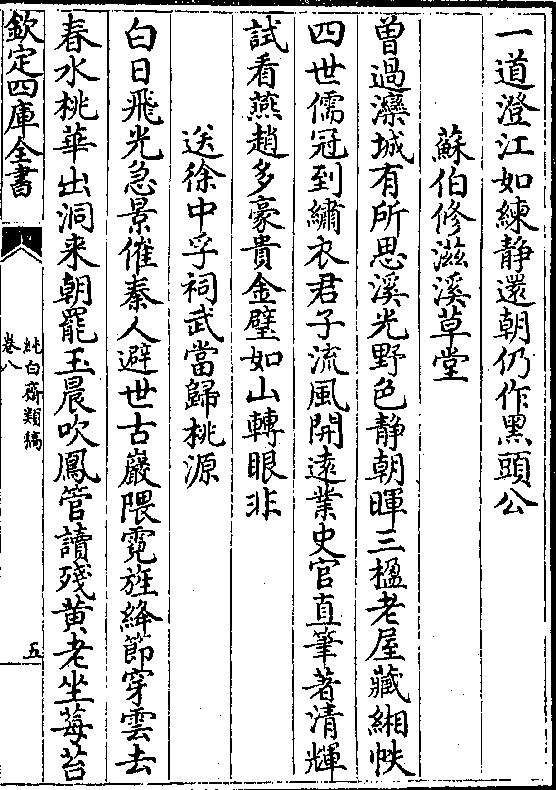 一道澄江如練静還朝仍作黑頭公
蘇伯修滋溪草堂
曽過灤城有所思溪光野色静朝暉三楹老屋藏緗帙
四世儒冠到繡衣君子流風開逺業史官直筆著清輝
試看燕趙多豪貴金璧如山轉眼非
送徐中孚祠武當歸桃源
白日飛光急景催秦人避世古巖隈霓旌絳節穿雲去
春水桃華出洞来朝罷玉晨吹鳳管讀殘黄老坐莓苔
欽定四庫全書
純白齋類稿
卷八
五